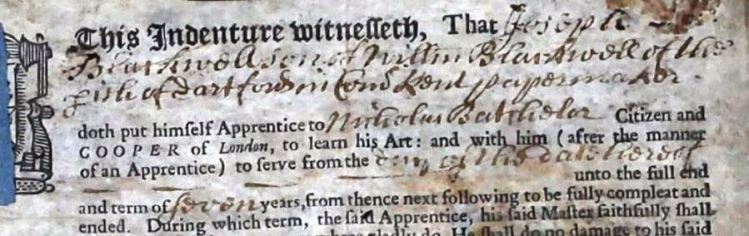 This Indenture witnesseth, That Joseph
Blackwell son of Willm Blackwell of the
pish of dartford in Com Kent papermaker
doth put himself Apprentice to Nicholas Batchelor Citizen and
COOPER of London, to learn his Art: and with him (after the manner
of an Apprentice) to serve from the day of the date hereof
unto the full end
and term of seven years, from thence next following to be fully compleat and
ended. During which term, the said Apprentice, his said Master faithfully shall
gladly do. He shall do no damage to his said